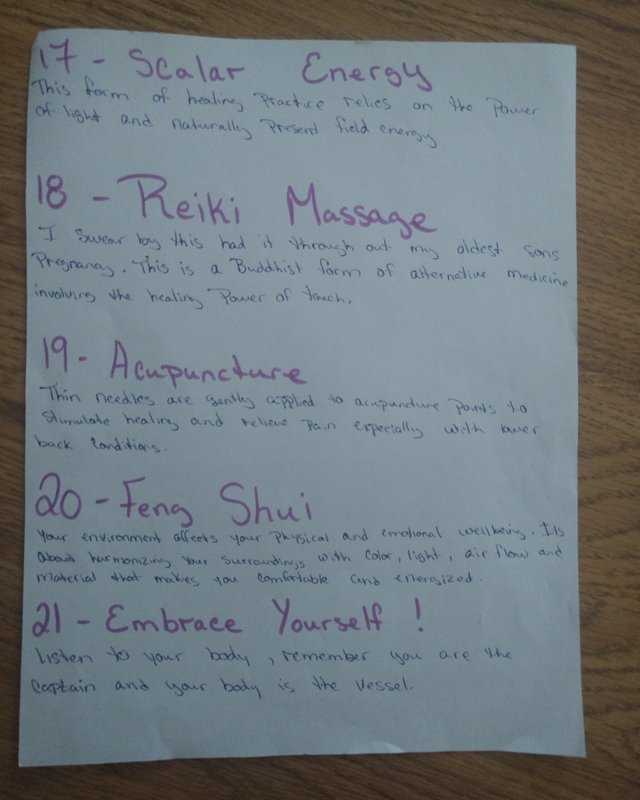 17 - Scalar Energy
This form of healing Practice relies on the Power
of light and naturally Present field energy
18 - Reiki Massage
I swear by this had it through out my oldest sons
Pregnancy. This is a Buddhist form of alternative medicine
involving the healing Power of touch.
19 - Acupuncture
Thin needles are gently applied to acupuncture points to
Stimulate healing and relieve Pain especially with lower
back Conditions.
20 - Feng Shui
Your environment affects your Physical and emotional wellbeing. Its
about harmonizing your surroundings with Color, light, air flow and
material that makes you comfortable and energized.
21 - Embrace Yourself !
Listen to your body, remember you are the
Captain and your body is the Vessel.